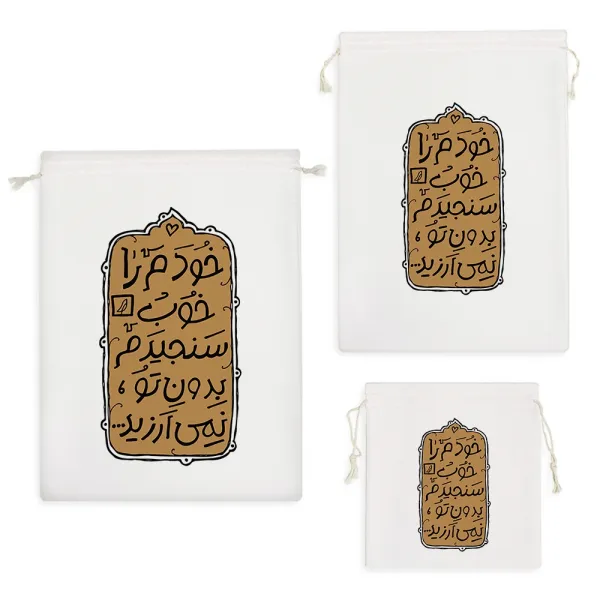 خودم را
خوب
سنجیدم
بدون تو،
نمی ارزید...
خودم را
خوب
سنجیدم
بدون تو،
نمی ارزید...
خودم را
خوب
سنجیدم
بدون تو،
نمی ارزید...